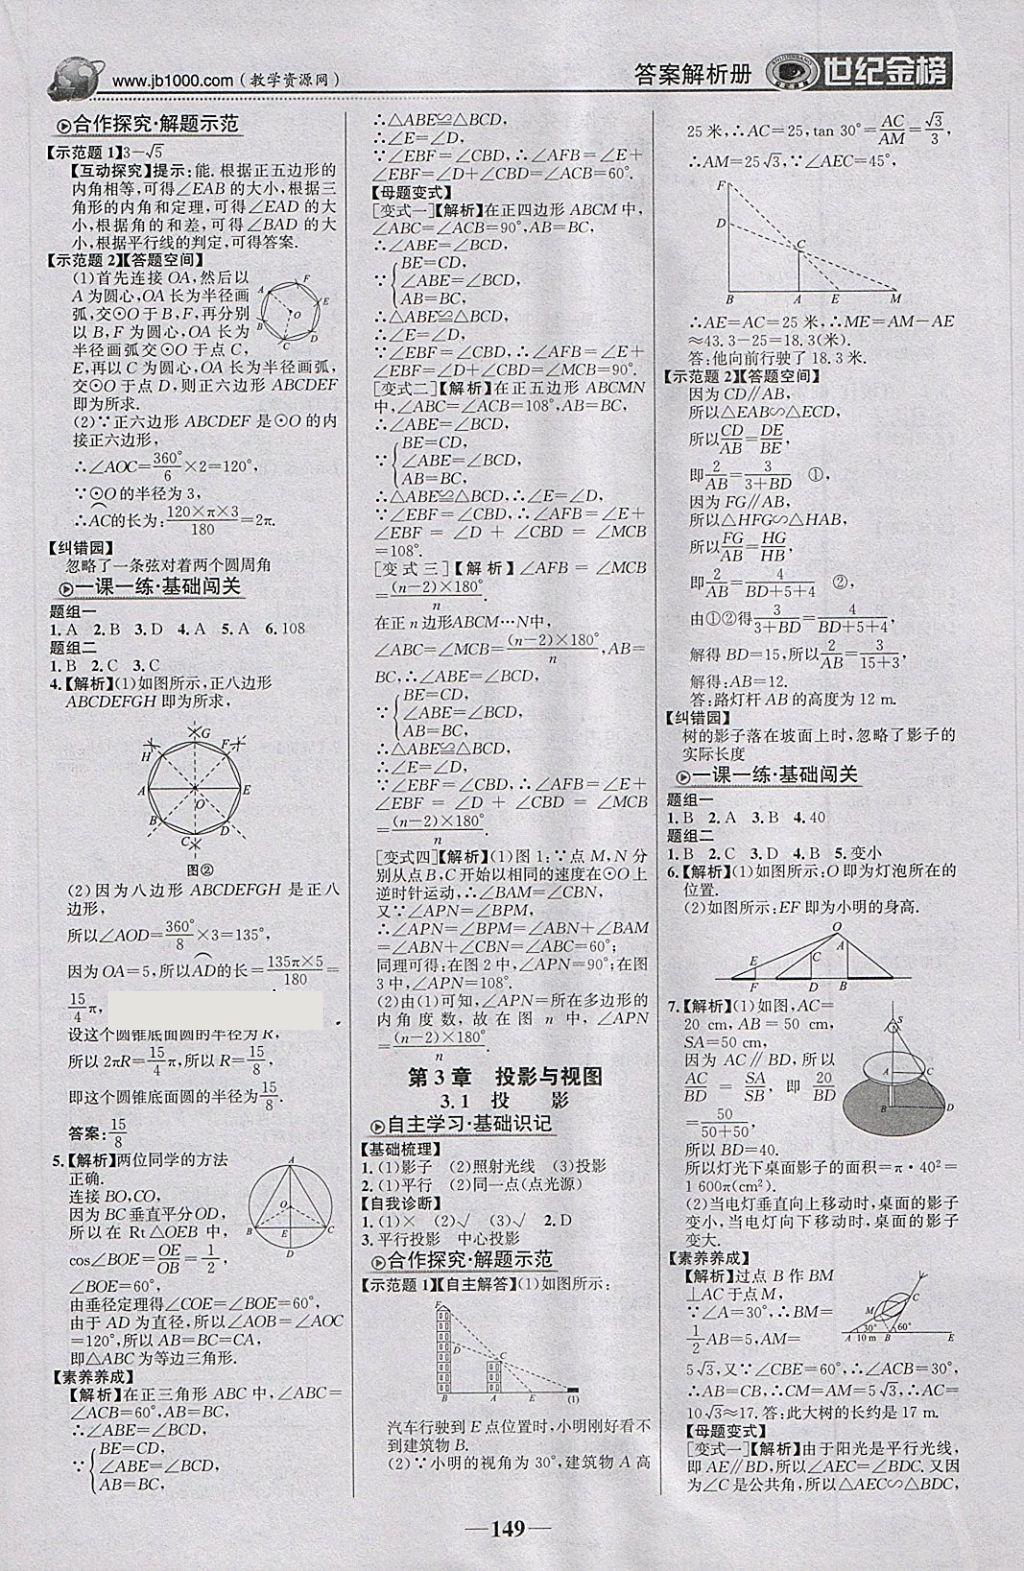 www.jb1000.com（教学资源网）
答案解析册
世纪金榜
合作探究·解题示范
【示范题1】3－√5
【互动探究】提示:能.根据正五边形的
内角相等,可得∠EAB的大小,根据三
角形的内角和定理,可得∠EAD的大
小,根据角的和差,可得∠BAD的大
小,根据平行线的判定,可得答案.
【示范题2】【答题空间】
(1)首先连接OA,然后以
A为圆心,OA长为半径画
弧,交⊙O于B,F,再分别
以B,F为圆心,OA长为
半径画弧交⊙O于点C,
E,再以C为圆心,OA长为半径画弧,
交⊙O于点D,则正六边形ABCDEF
即为所求.
(2)∵正六边形ABCDEF是⊙O的内
接正六边形,
∴∠AOC=360°/6×2=120°,
∵⊙O的半径为3,
∴AC⌒的长为:120×π×3/180=2π.
【纠错园】
忽略了一条弦对着两个圆周角
一课一练·基础闯关
题组一
1.A 2.B 3.D 4.A 5.A 6.108
题组二
1.B 2.C 3.C
4.【解析】(1)如图所示,正八边形
ABCDEFGH即为所求,
图②
(2)因为八边形ABCDEFGH是正八
边形,
所以∠AOD=360°/8×3=135°,
因为OA=5,所以AD⌒的长=135π×5/180=
15/4π,
设这个圆锥底面圆的半径为R,
所以2πR=15/4π,所以R=15/8,
即这个圆锥底面圆的半径为15/8.
答案:15/8
5.【解析】两位同学的方法
正确.
连接BO,CO,
因为BC垂直平分OD,
所以在Rt△OEB中,
cos∠BOE=OE/OB=1/2,
∠BOE=60°,
由垂径定理得∠COE=∠BOE=60°,
由于AD为直径,所以∠AOB=∠AOC
=120°,所以AB=BC=CA,
即△ABC为等边三角形.
【素养养成】
【解析】在正三角形ABC中,∠ABC=
∠ACB=60°,AB=BC,
∴∠ABE=∠BCD,
∵{BE=CD,
∠ABE=∠BCD,
AB=BC,
∴△ABE≌△BCD,
∴∠E=∠D,
∵∠EBF=∠CBD,∴∠AFB=∠E+
∠EBF=∠D+∠CBD=∠ACB=60°.
【母题变式】
[变式一]【解析】在正四边形ABCM中,
∠ABC=∠ACB=90°,AB=BC,
∴∠ABE=∠BCD,
∵{BE=CD,
∠ABE=∠BCD,
AB=BC,
∴△ABE≌△BCD,
∴∠E=∠D,
∵∠EBF=∠CBD,∴∠AFB=∠E+
∠EBF=∠D+∠CBD=∠MCB=90°.
[变式二]【解析】在正五边形ABCMN
中,∠ABC=∠ACB=108°,AB=BC,
∴∠ABE=∠BCD,
∵{BE=CD,
∠ABE=∠BCD,
AB=BC,
∴△ABE≌△BCD,∴∠E=∠D,
∵∠EBF=∠CBD,∴∠AFB=∠E+
∠EBF=∠D+∠CBD=∠MCB
=108°.
[变式三]【解析】∠AFB=∠MCB
=(n-2)×180°/n.
在正n边形ABCM…N中,
∠ABC=∠MCB=(n-2)×180°/n,AB=
BC,∴∠ABE=∠BCD,
∵{BE=CD,
∠ABE=∠BCD,
AB=BC,
∴△ABE≌△BCD,
∴∠E=∠D,
∵∠EBF=∠CBD,∴∠AFB=∠E+
∠EBF=∠D+∠CBD=∠MCB
=(n-2)×180°/n.
[变式四]【解析】(1)图1:∵点M,N分
别从点B,C开始以相同的速度在⊙O上
逆时针运动,∴∠BAM=∠CBN,
又∵∠APN=∠BPM,
∴∠APN=∠BPM=∠ABN+∠BAM
=∠ABN+∠CBN=∠ABC=60°;
同理可得:在图2中,∠APN=90°;在图
3中,∠APN=108°.
(2)由(1)可知,∠APN=所在多边形的
内角度数,故在图n中,∠APN
=(n-2)×180°/n.
第3章 投影与视图
3.1 投 影
自主学习·基础识记
【基础梳理】
1.(1)影子 (2)照射光线 (3)投影
2.(1)平行 (2)同一点(点光源)
【自我诊断】
1.(1)× (2)√ (3)√ 2.D
3.平行投影 中心投影
合作探究·解题示范
【示范题1】【自主解答】(1)如图所示:
汽车行驶到E点位置时,小明刚好看不
到建筑物B.
(2)∵小明的视角为30°,建筑物A高
25米,∴AC=25,tan 30°=AC/AM=√3/3,
∴AM=25√3,∵∠AEC=45°,
∴AE=AC=25米,∴ME=AM-AE
≈43.3-25=18.3(米).
答:他向前行驶了18.3米.
【示范题2】【答题空间】
因为CD∥AB,
所以△EAB∽△ECD,
所以CD/AB=DE/BE,
即2/AB=3/(3+BD) ①,
因为FG∥AB,
所以△HFG∽△HAB,
所以FG/AB=HG/HB,
即2/AB=4/(BD+5+4) ②,
由①②得3/(3+BD)=4/(BD+5+4),
解得BD=15,所以2/AB=3/(15+3),
解得:AB=12.
答:路灯杆AB的高度为12 m.
【纠错园】
树的影子落在坡面上时,忽略了影子的
实际长度
一课一练·基础闯关
题组一
1.B 2.A 3.B 4.40
题组二
1.B 2.C 3.D 4.B 5.变小
6.【解析】(1)如图所示:O即为灯泡所在的
位置.
(2)如图所示:EF即为小明的身高.
7.【解析】(1)如图,AC=
20 cm,AB=50 cm,
SA=50 cm,
因为AC∥BD,所以
AC/BD=SA/SB,即20/BD
=50/(50+50),
所以BD=40.
所以灯光下桌面影子的面积=π·40²=
1 600π(cm²).
(2)当电灯垂直向上移动时,桌面的影子
变小,当电灯向下移动时,桌面的影子
变大.
【素养养成】
【解析】过点B作BM
⊥AC于点M,
∵∠A=30°,∴BM=
1/2AB=5,AM=
5√3,又∵∠CBE=60°,∴∠ACB=30°,
∴AB=CB,∴CM=AM=5√3,∴AC=
10√3≈17.答:此大树的长约是17 m.
【母题变式】
[变式一]【解析】由于阳光是平行光线,
即AE∥BD,所以∠AEC=∠BDC.又因
为∠C是公共角,所以△AEC∽△BDC,
—149—